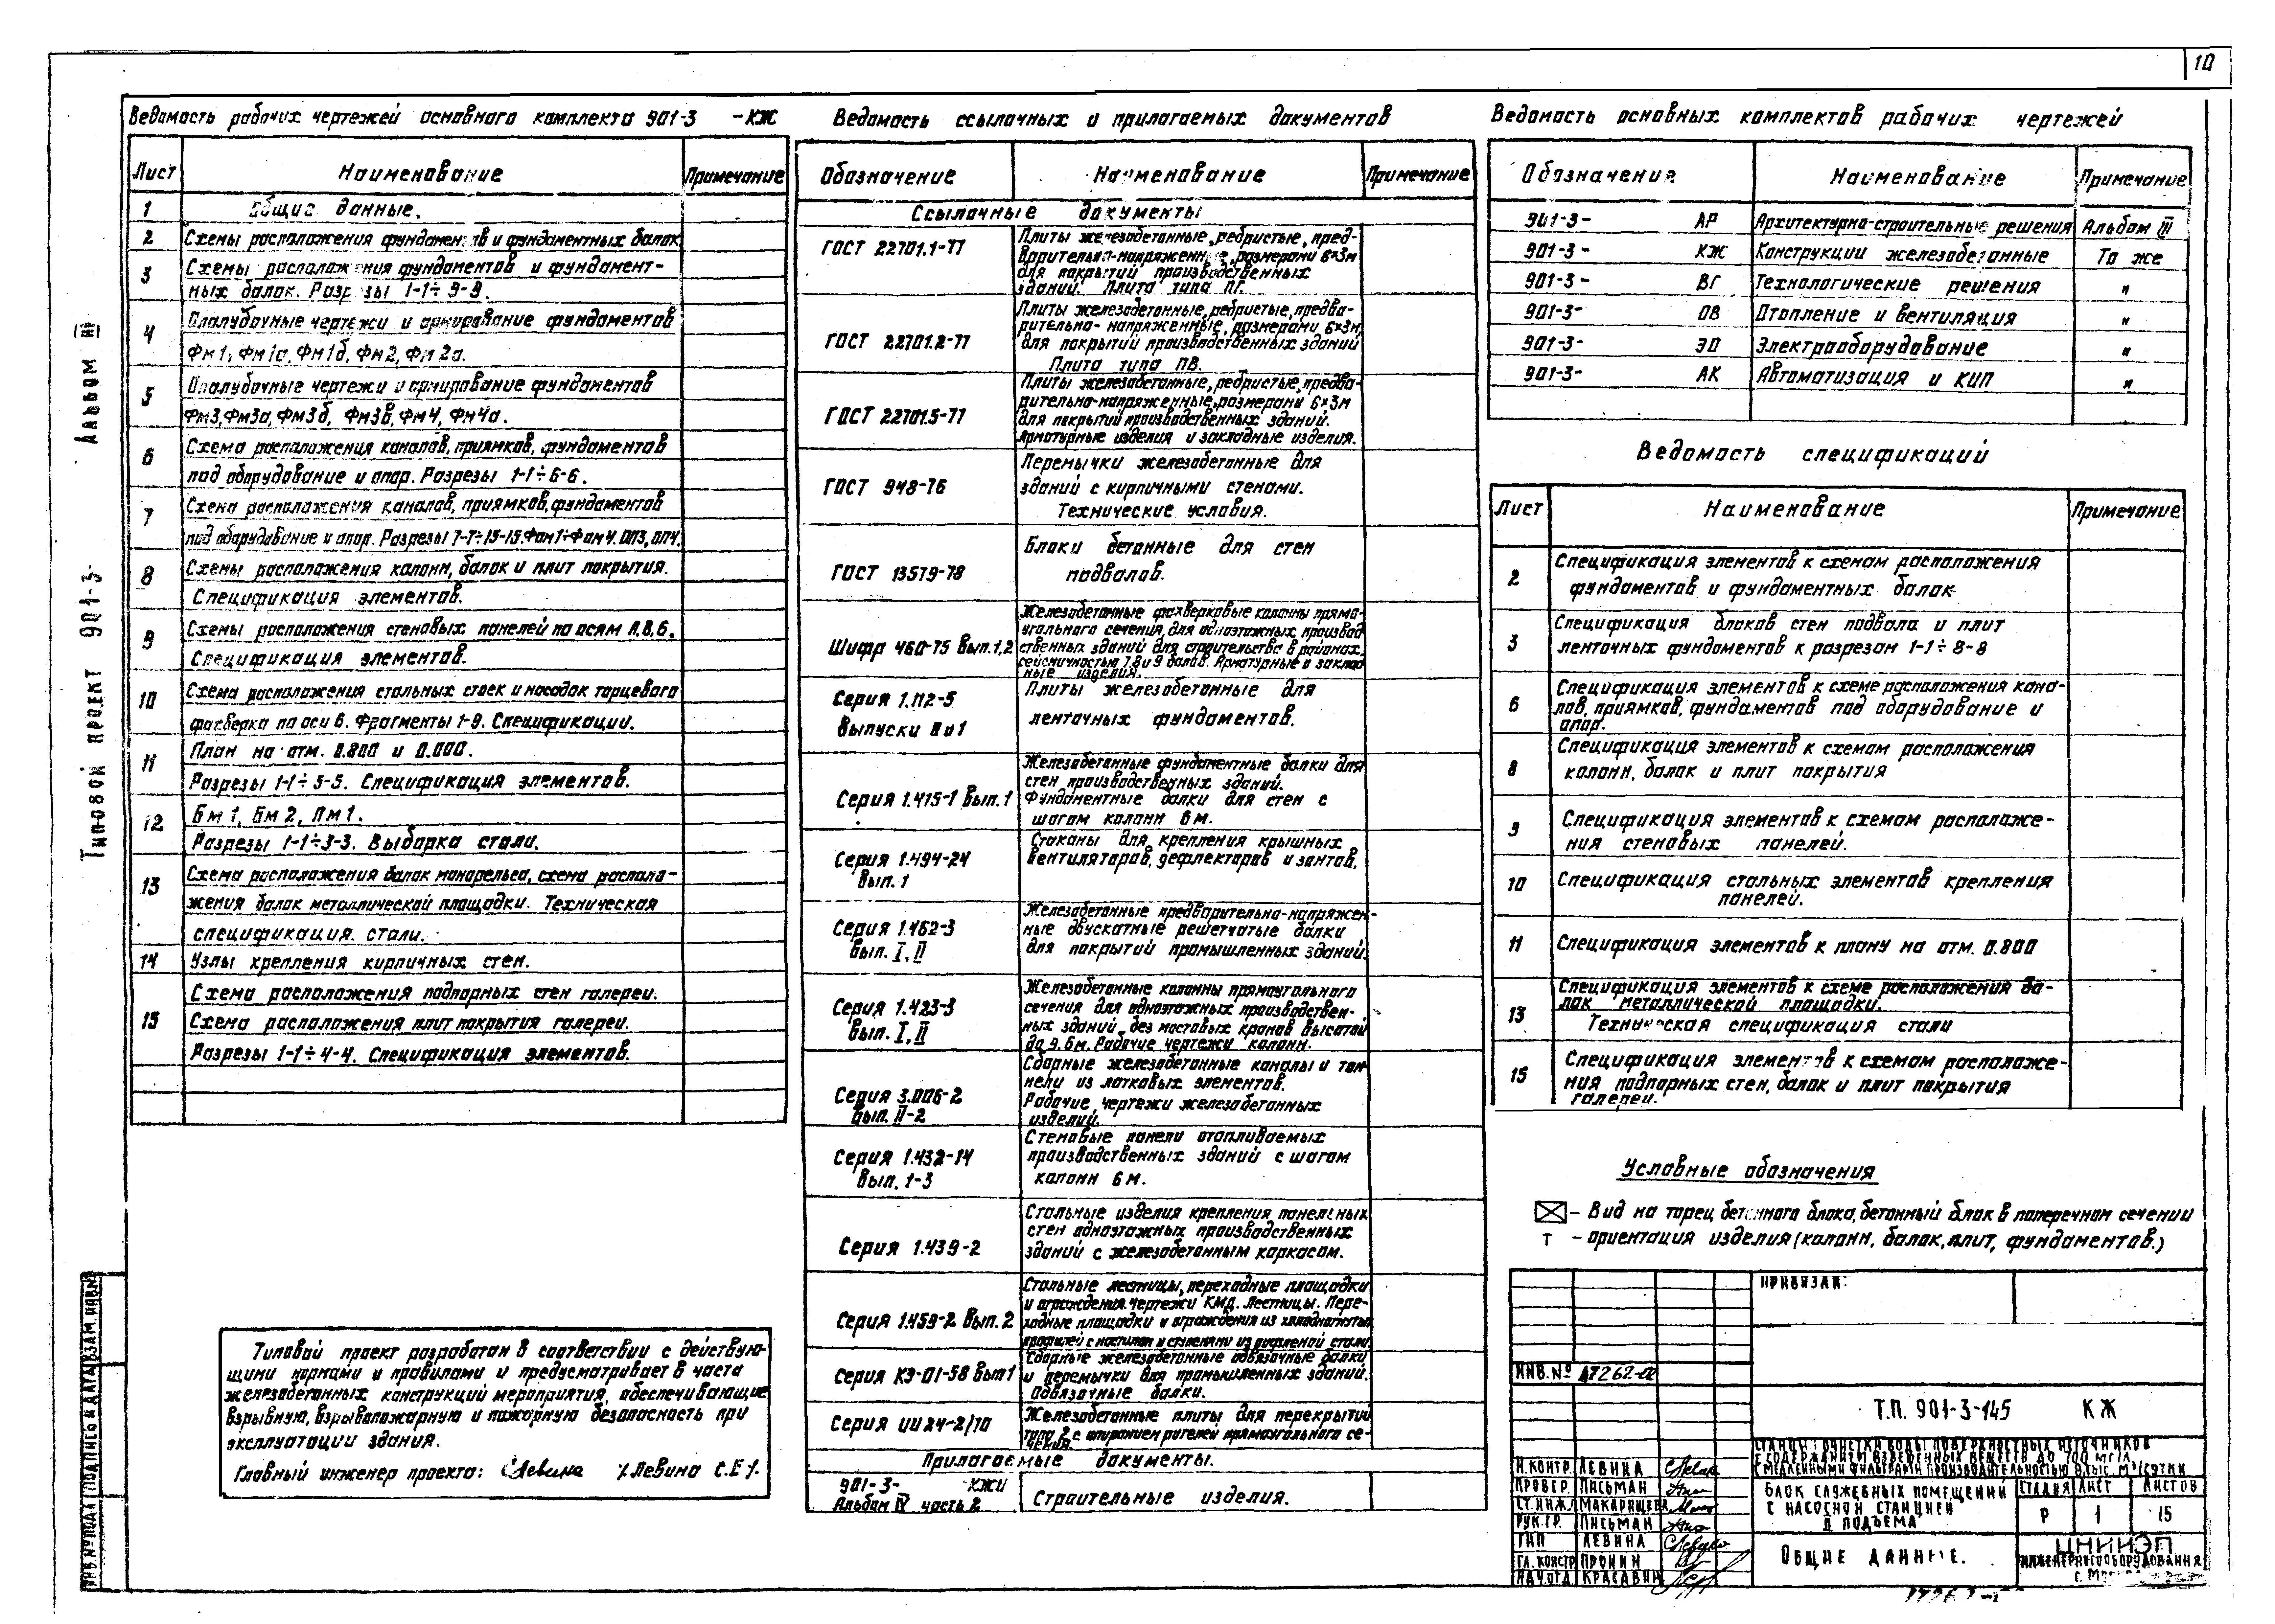 10
Ведомость рабочих чертежей основного комплекта 901-3 -КЖ
Лист Наименование Примечание
1 Общие данные.
2 Схемы расположения фундаментов и фундаментных балок
3 Схемы расположения фундаментов и фундамент-
ных балок. Разрезы 1-1÷9-9.
4 Опалубочные чертежи и армирование фундаментов
Фм1, Фм1а, Фм1б, Фм2, Фм2а.
5 Опалубочные чертежи и армирование фундаментов
Фм3, Фм3а, Фм3б, Фм3в, Фм4, Фм4а.
6 Схема расположения каналов, приямков, фундаментов
под оборудование и опор. Разрезы 1-1÷6-6.
7 Схема расположения каналов, приямков, фундаментов
под оборудование и опор. Разрезы 7-7÷15-15. Фом1÷Фом4. ОП3, ОП4.
8 Схемы расположения колонн, балок и плит покрытия.
Спецификация элементов.
9 Схемы расположения стеновых панелей по осям А,В,6.
Спецификация элементов.
10 Схема расположения стальных стоек и насадок торцевого
фахверка по оси 6. Фрагменты 1-9. Спецификации.
11 План на отм. 0.800 и 0.000.
Разрезы 1-1÷5-5. Спецификация элементов.
12 Бм1, Бм2, Пм1.
Разрезы 1-1÷3-3. Выборка стали.
13 Схема расположения балок монорельса, схема располо-
жения балок металлической площадки. Техническая
спецификация стали.
14 Узлы крепления кирпичных стен.
15 Схема расположения подпорных стен галереи.
Схема расположения плит покрытия галереи.
Разрезы 1-1÷4-4. Спецификация элементов.
Типовой проект разработан в соответствии с действую-
щими нормами и правилами и предусматривает в части
железобетонных конструкций мероприятия, обеспечивающие
взрывную, взрывопожарную и пожарную безопасность при
эксплуатации здания.
Главный инженер проекта: /Левина С.Е./
Ведомость ссылочных и прилагаемых документов
Обозначение Наименование Примечание
Ссылочные документы
ГОСТ 22701.1-77 Плиты железобетонные, ребристые, пред-
варительно-напряженные, размерами 6×3м
для покрытий производственных
зданий. Плита типа ПГ.
ГОСТ 22701.2-77 Плиты железобетонные, ребристые, предва-
рительно-напряженные, размерами 6×3м,
для покрытий производственных зданий
Плита типа ПВ.
ГОСТ 22701.5-77 Плиты железобетонные, ребристые, предва-
рительно-напряженные, размерами 6×3м
для покрытий производственных зданий.
Арматурные изделия и закладные изделия.
ГОСТ 948-76 Перемычки железобетонные для
зданий с кирпичными стенами.
Технические условия.
ГОСТ 13579-78 Блоки бетонные для стен
подвалов.
Шифр 460-75 вып.1,2 Железобетонные фахверковые колонны прямо-
угольного сечения, для одноэтажных производ-
ственных зданий для строительства в районах
сейсмичностью 7,8 и 9 балов. Арматурные и заклад-
ные изделия.
Серия 1.112-5
Выпуски 0 и 1 Плиты железобетонные для
ленточных фундаментов.
Серия 1.415-1 вып.1 Железобетонные фундаментные балки для
стен производственных зданий.
Фундаментные балки для стен с
шагом колонн 6м.
Серия 1.494-24
вып. 1 Стаканы для крепления крышных
вентиляторов, дефлекторов и зонтов.
Серия 1.462-3
вып. I, II Железобетонные предварительно-напряжен-
ные двускатные решетчатые балки
для покрытий промышленных зданий.
Серия 1.423-3
вып. I, II Железобетонные колонны прямоугольного
сечения для одноэтажных производствен-
ных зданий без мостовых кранов высотой
до 9.6м. Рабочие чертежи колонн.
Серия 3.006-2
вып. II-2 Сборные железобетонные каналы и тон-
нели из лотковых элементов.
Рабочие чертежи железобетонных
изделий.
Серия 1.432-14
вып. 1-3 Стеновые панели отапливаемых
производственных зданий с шагом
колонн 6м.
Серия 1.439-2 Стальные изделия крепления панельных
стен одноэтажных производственных
зданий с железобетонным каркасом.
Серия 1.459-2 вып.2 Стальные лестницы, переходные площадки
и ограждения. Чертежи КМД. Лестницы. Пере-
ходные площадки и ограждения из холодногнутых
профилей с настилом и ступенями из рифленой стали.
Серия КЭ-01-58 вып1 Сборные железобетонные обвязочные балки
и перемычки для промышленных зданий.
Обвязочные балки.
Серия ИИ24-2/70 Железобетонные плиты для перекрытий
типа 2 с опиранием ригелей прямоугольного се-
чения.
Прилагаемые документы.
901-3- КЖИ
Альбом IV часть 2 Строительные изделия.
Ведомость основных комплектов рабочих чертежей
Обозначение Наименование Примечание
901-3- АР Архитектурно-строительные решения Альбом III
901-3- КЖ Конструкции железобетонные То же
901-3- ВГ Технологические решения "
901-3- ОВ Отопление и вентиляция "
901-3- ЭО Электрооборудование "
901-3- АК Автоматизация и КИП "
Ведомость спецификаций
Лист Наименование Примечание
2 Спецификация элементов к схемам расположения
фундаментов и фундаментных балок
3 Спецификация блоков стен подвала и плит
ленточных фундаментов к разрезам 1-1÷8-8
6 Спецификация элементов к схеме расположения кана-
лов, приямков, фундаментов под оборудование и
опор.
8 Спецификация элементов к схемам расположения
колонн, балок и плит покрытия
9 Спецификация элементов к схемам расположе-
ния стеновых панелей.
10 Спецификация стальных элементов крепления
панелей.
11 Спецификация элементов к плану на отм. 0.800
13 Спецификация элементов к схеме расположения ба-
лок металлической площадки.
Техническая спецификация стали
15 Спецификация элементов к схемам расположе-
ния подпорных стен, балок и плит покрытия
галереи.
Условные обозначения
– Вид на торец бетонного блока, бетонный блок в поперечном сечении
т – ориентация изделия (колонн, балок, плит, фундаментов.)
Привязан:
Инв.№ 17262-02
Т.П. 901-3-145 КЖ
Станция очистки воды поверхностных источников
с содержанием взвешенных веществ до 700 мг/л
с медленными фильтрами производительностью 8 тыс. м³/сутки
Н.контр. Левина
Провер. Письман
Ст.инж. Макарищева
Рук.гр. Письман
ГИП Левина
Гл.констр Пронин
Нач.отд Красавин
Блок служебных помещений
с насосной станцией
II подъема
Стадия Лист Листов
Р 1 15
Общие данные.
ЦНИИЭП
инженерного оборудования
Типовой проект 901-3- Альбом III
Инв.№ подл Подпись и дата Взам.инв.№